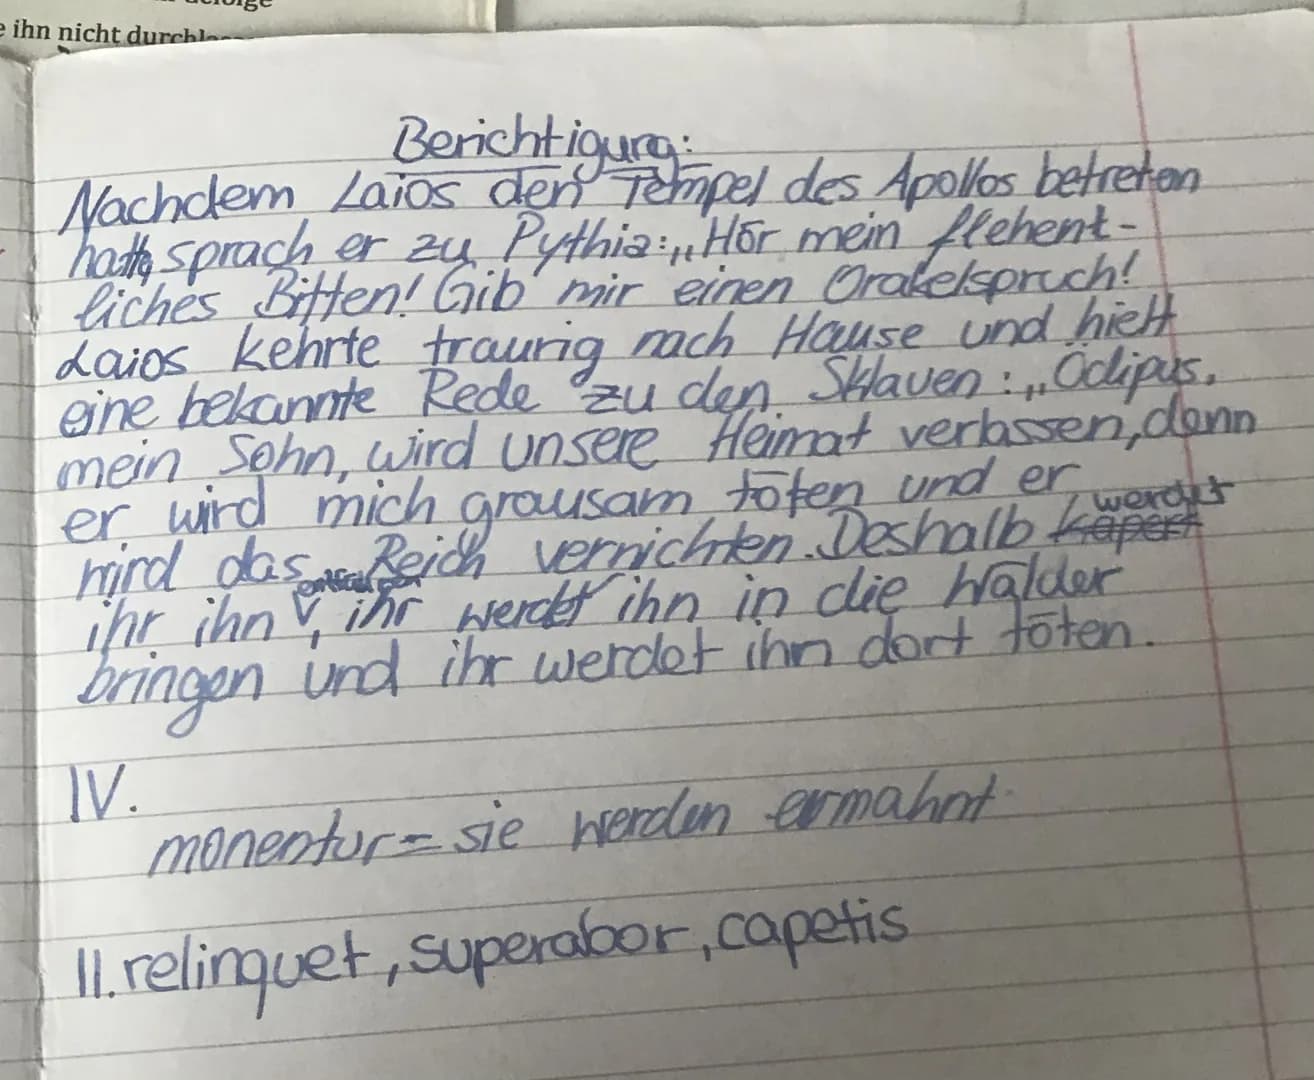 e ihn nicht
Berichtigung:
Nachdem Laios den Tempel des Apollos betreten
hatte, sprach er zu Pythia: „Hör mein flehent-
liches Bitten! Gib mir einen Orakelspruch!
Laios kehrte traurig nach Hause und hielt
eine bekannte Rede zu den Sklaven: „Ödipus,
mein Sohn, wird unsere Heimat verlassen, denn
er wird mich grausam töten und er
wird das Reich vernichten. Deshalb werdet
ihr ihn, ihr werdet ihn in die Wälder
bringen und ihr werdet ihn dort töten.
IV.
monentur = sie werden ermahnt.
II. relinquet, superabor, capetis